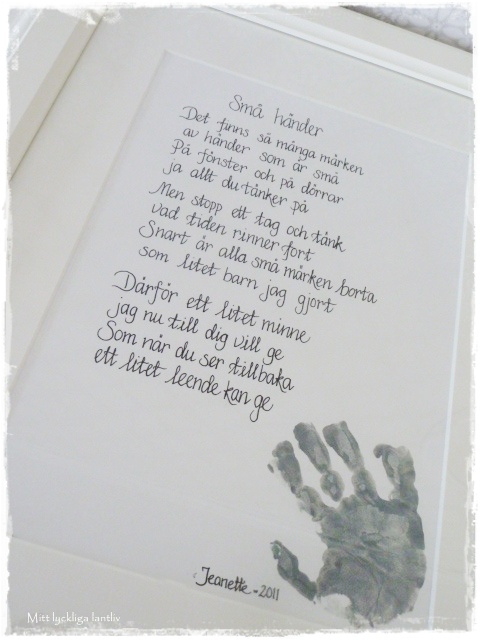 Små händer
Det finns så många märken
av händer som är små
På fönster och på dörrar
ja allt du tänker på
Men stopp ett tag och tänk
vad tiden rinner fort
Snart är alla små märken borta
som litet barn jag gjort
Därför ett litet minne
jag nu till dig vill ge
Som när du ser tillbaka
ett litet leende kan ge
Jeanette - 2011
Mitt lyckliga lantliv